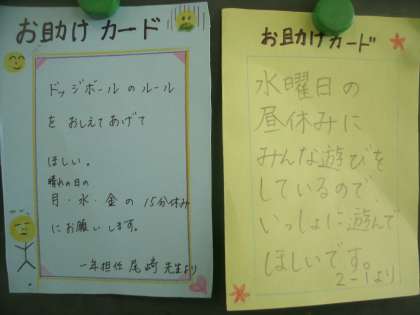 お助けカード
ドッジボールのルール
をおしえてあげて
ほしい。
晴れの日の
月・水・金の15分休み
にお願いします。
一年担任尾崎先生より
お助けカード
水曜日の
昼休みに
みんな遊びを
しているので
いっしょに遊んで
ほしいです。
2-1より